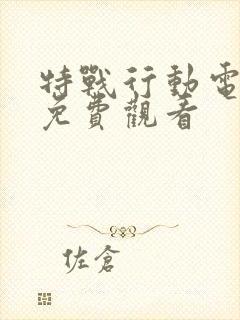 特戰行動電
免費觀看
佐倉